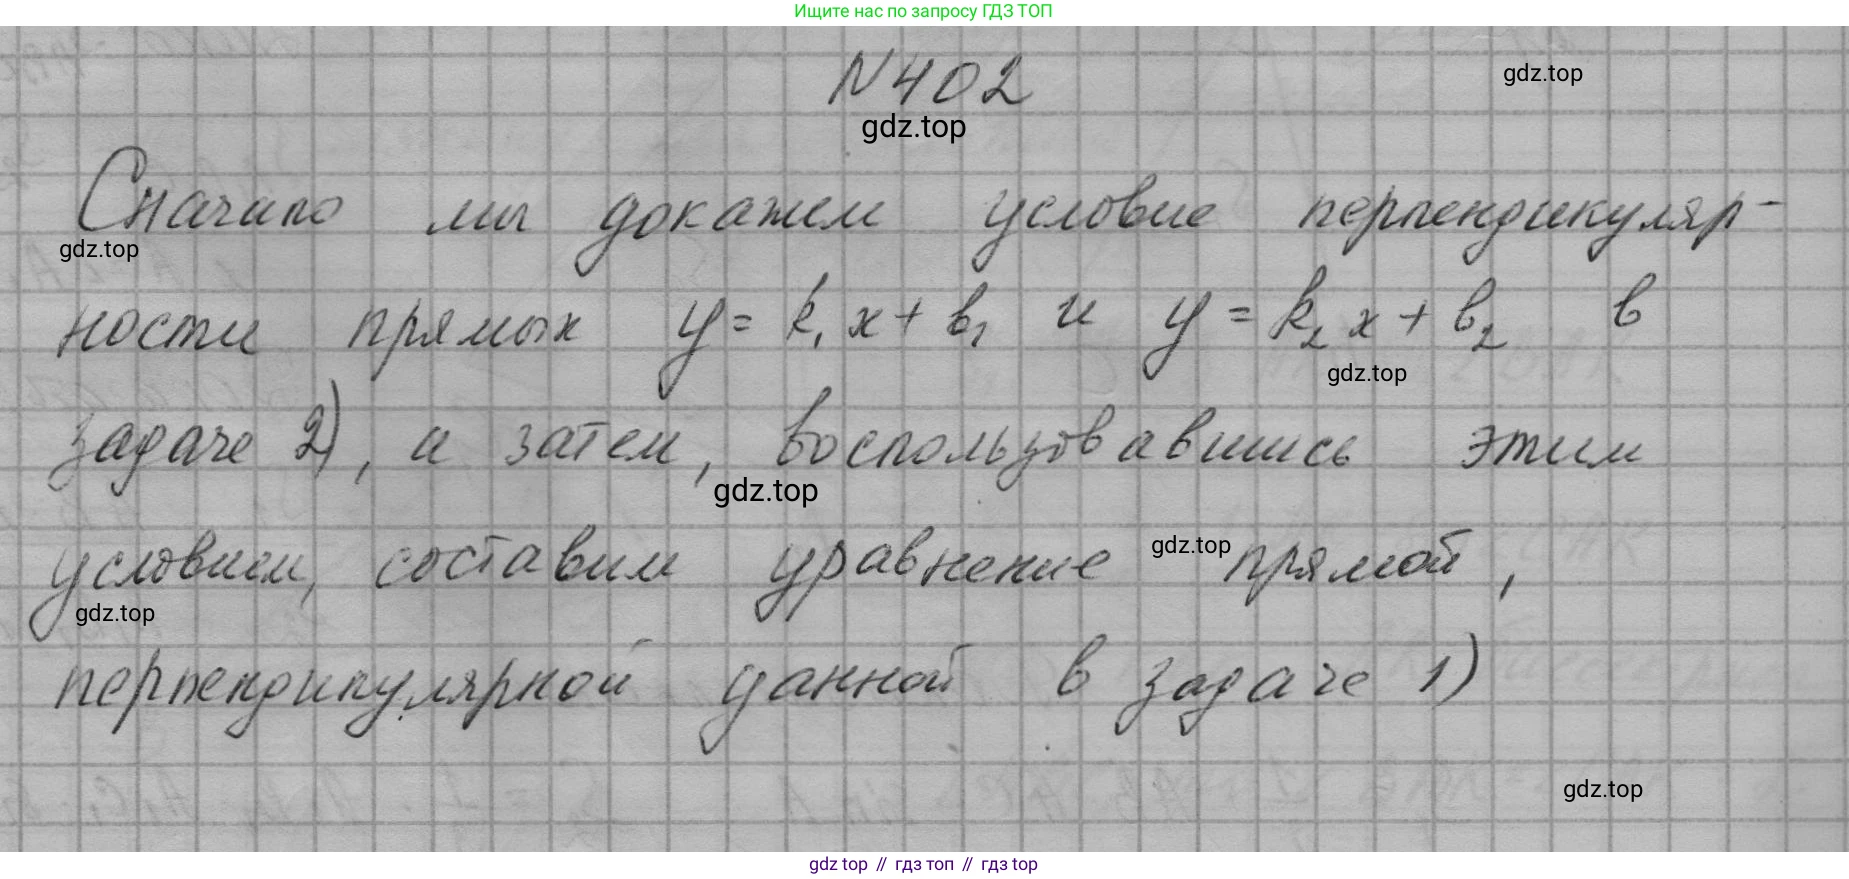 Ищите нас по запросу ГДЗ ТОП
N402
gdz.top
gdz.top
Сначало мы докажем условие перпендикуляр-
gdz.top
ности прямых y = k₁x + b₁ и y = k₂x + b₂ в
gdz.top
задаче 2), а затем, воспользовавшись этим
gdz.top
условием, составим уравнение прямой,
gdz.top
gdz.top
перпендикулярной данной в задаче 1)
gdz.top
gdz top // гдз топ // гдз top